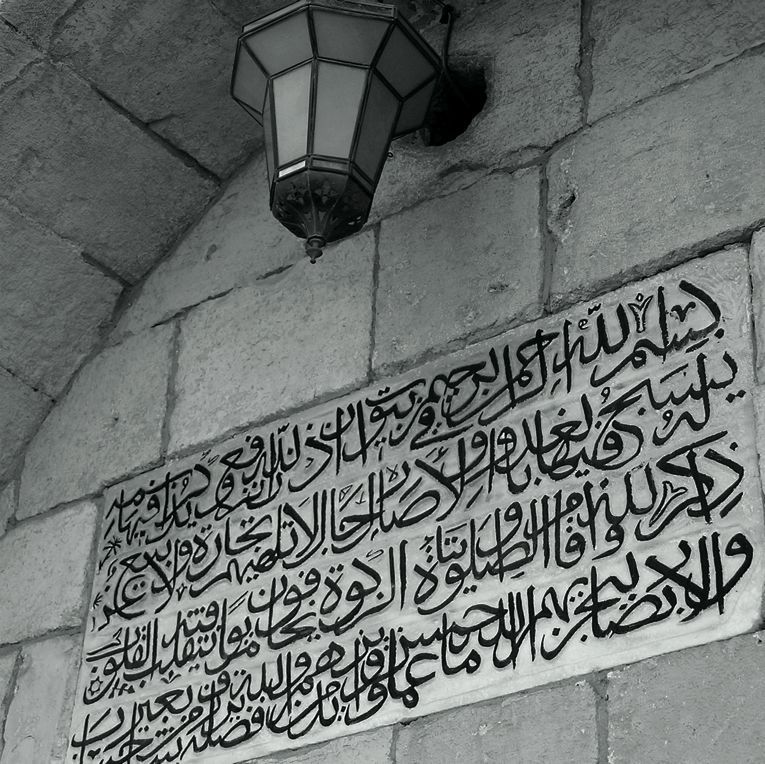 بسم الله الرحمن الرحيم في بيوت أذن الله أن ترفع ويذكر فيها اسمه
يسبح له فيها بالغدو والآصال رجال لا تلهيهم تجارة ولا بيع عن
ذكر الله وإقام الصلوة وإيتاء الزكوة يخافون يوما تتقلب فيه القلوب
والأبصار ليجزيهم الله أحسن ما عملوا ويزيدهم من فضله والله يرزق من يشاء بغير حساب